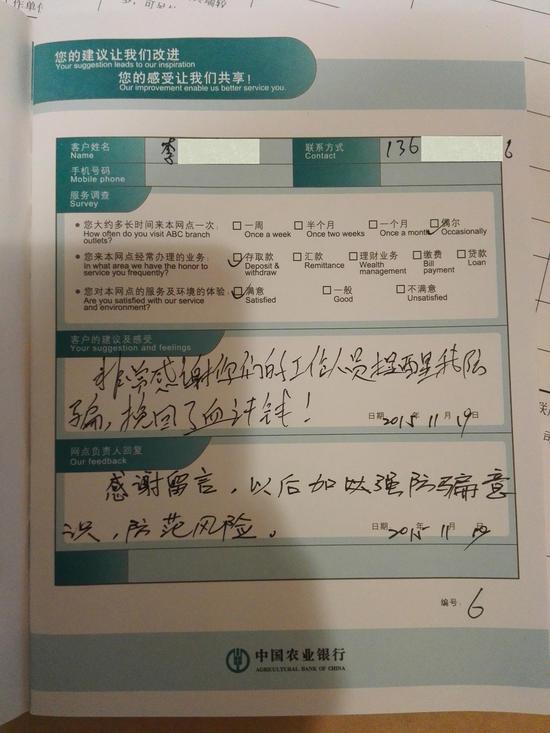 您的建议让我们改进
Your suggestion leads to our inspiration
您的感受让我们共享！
Our improvement enable us better service you.
客户姓名 李 联系方式 136 6
Name Contact
手机号码
Mobile phone
服务调查
Survey
您大约多长时间来本网点一次： 一周 半个月 一个月 偶尔
How often do you visit ABC branch outlets? Once a week Once two weeks Once a month Occasionally
您来本网点经常办理的业务： 存取款 汇款 理财业务 缴费 贷款
In what area we have the honor to service you frequently? Deposit & withdraw Remittance Wealth management Bill payment Loan
您对本网点的服务及环境的体验： 满意 一般 不满意
Are you satisfied with our service and environment? Satisfied Good Unsatisfied
客户的建议及感受
Your suggestion and feelings
非常感谢你们的工作人员提醒我防
骗，挽回了血汗钱！
日期 2015年 11月 19日
网点负责人回复
Our feedback
感谢留言，以后加以强防骗意
识，防范风险。
日期 2015年 11月 19日
编号： 6
中国农业银行
AGRICULTURAL BANK OF CHINA